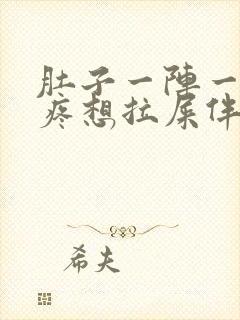 肚子一陣一
疼想拉屎伴
希夫